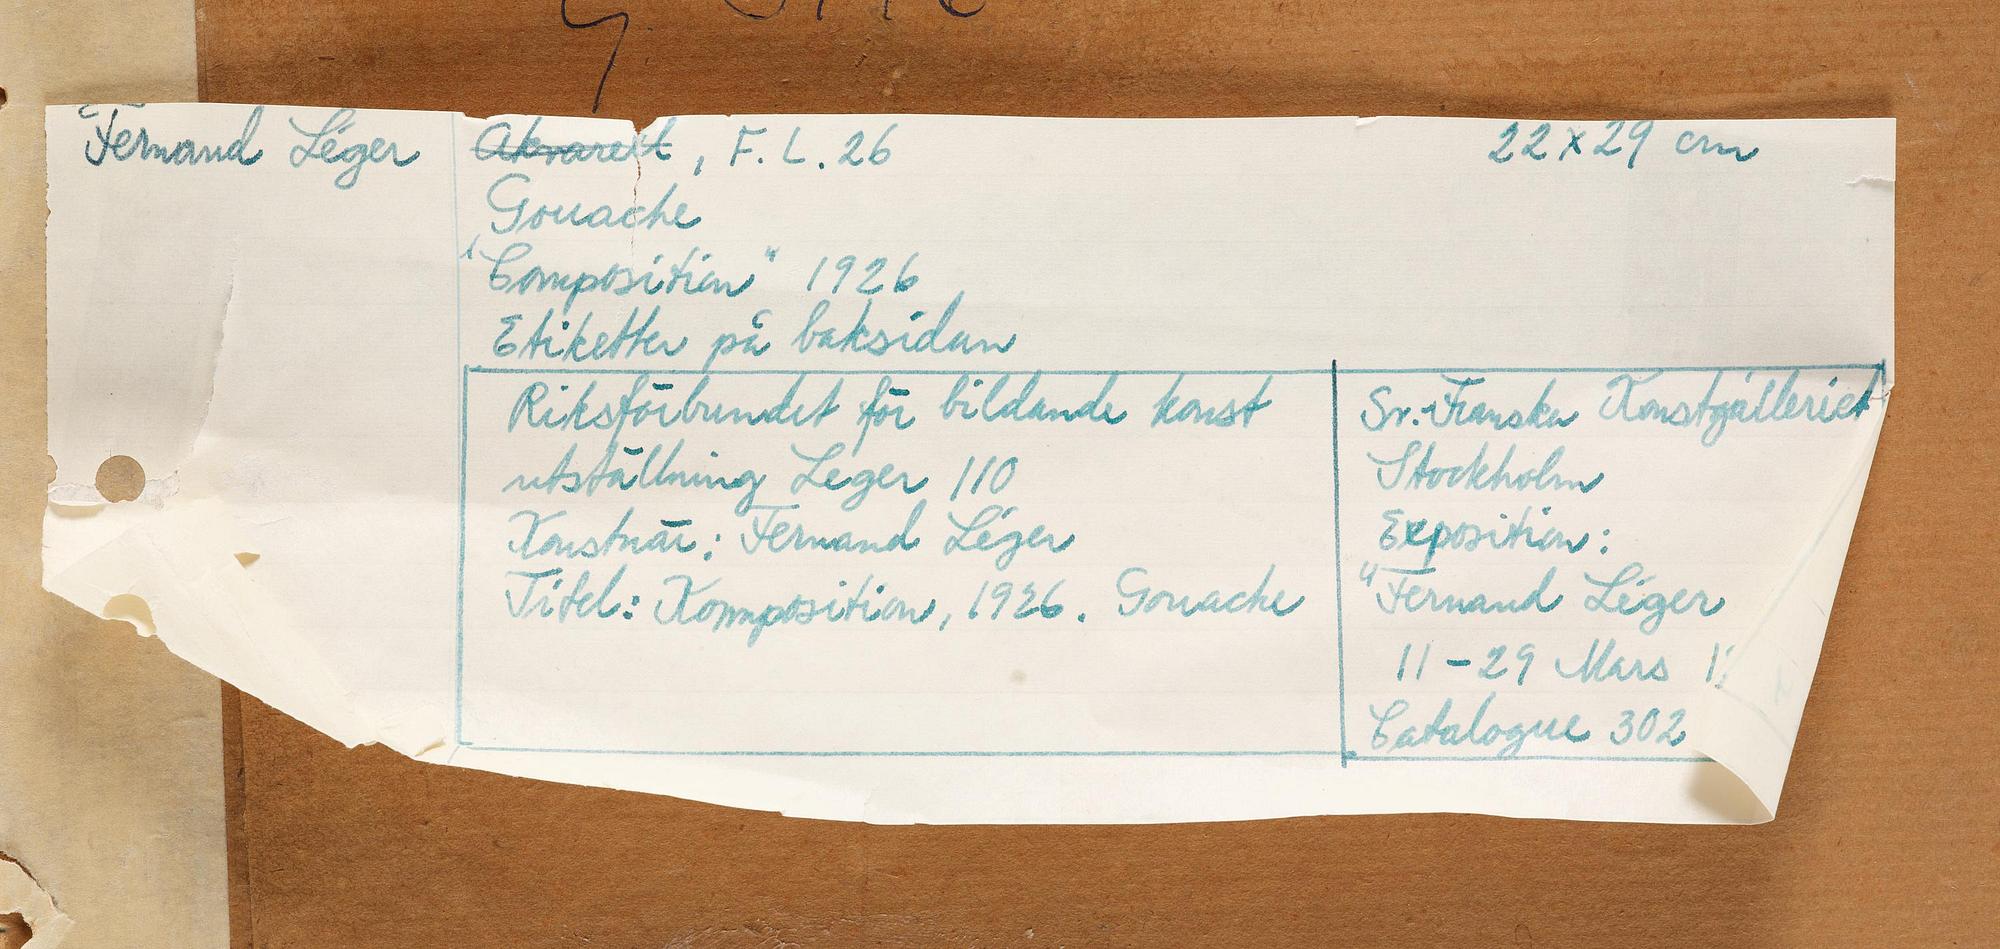 Fernand Léger
Akvarell, F. L. 26
22 x 29 cm
Gouache
"Composition" 1926
Etiketter på baksidan
Riksförbundet för bildande konst
utställning Leger 110
Konstnär: Fernand Léger
Titel: Komposition, 1926. Gouache
Sv.-Franska Konstgalleriet
Stockholm
Exposition:
"Fernand Léger
11-29 Mars
Catalogue 302